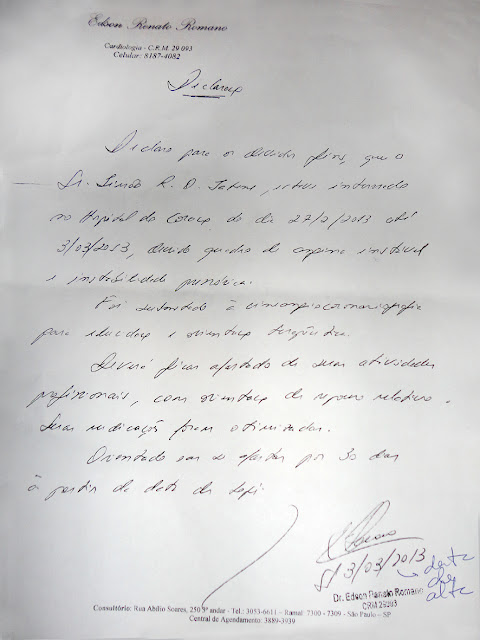 Edson Renato Romano
Cardiologia - C.R.M. 29 093
Celular: 8187-4082
Declaração
Declaro para os devidos fins, que o
Sr. Simão R. D. Jatene, esteve internado
no Hospital do Coração do dia 27/2/2013 até
3/03/2013, devido quadro de angina instável
e instabilidade pressórica.
Foi submetido à cineangiocoronariografia
para elucidação e orientação terapêutica.
Deverá ficar afastado de suas atividades
profissionais, com orientação de repouso relativo.
Suas medicações foram otimizadas.
Orientado em se afastar por 30 dias
à partir da data de
3/03/2013
data
de
alta
Dr. Edson Renato Romano
CRM 29093
Consultório: Rua Abílio Soares, 250 9º andar - Tel.: 3053-6611 - Ramal 7300 - 7309 - São Paulo - SP
Central de Agendamento: 3889-3939